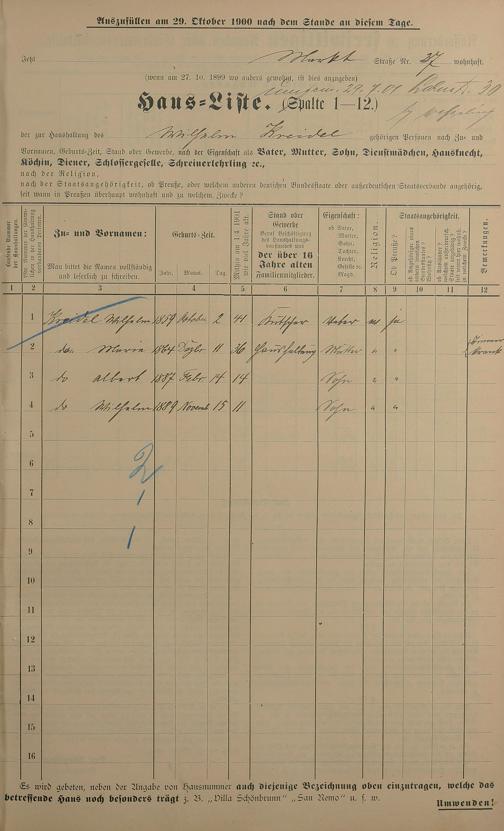 Auszufüllen am 29. Oktober 1900 nach dem Stande an diesem Tage.
Jetzt Markt Straße Nr. 37 wohnhaft.
(wenn am 27. 10. 1899 wo anders gewohnt, ist dies anzugeben)
29.7.01 30
Haus-Liste. (Spalte 1—12.)
der zur Haushaltung des Wilhelm Kreidel gehörigen Personen nach Zu- und
Vornamen, Geburts-Zeit, Stand oder Gewerbe, nach der Eigenschaft als Vater, Mutter, Sohn, Dienstmädchen, Hausknecht,
Köchin, Diener, Schlossergeselle, Schreinerlehrling ec.,
nach der Religion,
nach der Staatsangehörigkeit, ob Preuße, oder welchem anderen deutschen Bundesstaate oder außerdeutschen Staatsverbande angehörig,
seit wann in Preußen überhaupt wohnhaft und zu welchem Zwecke?
Laufende Nummer der Haushaltungen.
Zu- und Vornamen:
Man bittet die Namen vollständig und leserlich zu schreiben.
Geburts-Zeit.
Jahr. Monat. Tag.
Mithin am 1/4 1901 wie viel Jahre alt.
Stand oder Gewerbe
der über 16 Jahre alten Familienmitglieder.
Eigenschaft:
ob Vater, Mutter, Sohn, Tochter, Knecht, Geselle od. Magd.
Religion.
Staatsangehörigkeit.
Ob Preuße?
Bemerkungen.
1 2 3 4 5 6 7 8 9 10 11 12
1 Kreidel Wilhelm 1859 Oktober 2 41 Kutscher Vater ja
2 do. Maria 1864 11 36 Haushaltung Mutter " "
3 do Albert 1887 Febr 14 14 Sohn " "
4 do Wilhelm 1889 Novemb 15 11 Sohn " "
5
6
7
8
9
10
11
12
13
14
15
16
2
1
1
Es wird gebeten, neben der Angabe von Hausnummer auch diejenige Bezeichnung oben einzutragen, welche das
betreffende Haus noch besonders trägt z. B. „Villa Schönbrunn" „San Remo" u. s. w.
Umwenden!